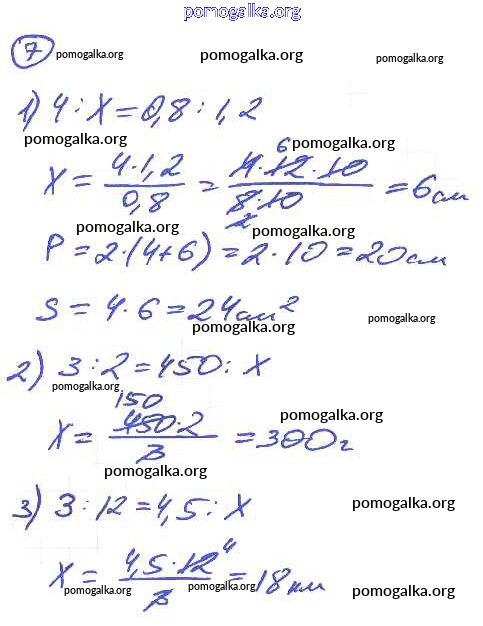 pomogalka.org
7 pomogalka.org pomogalka.org pomogalka.org
1) 4 : X = 0,8 : 1,2
pomogalka.org pomogalka.org
X = 4·1,2 / 0,8 = 4·12·10 / 8·10 = 6 см
6
2
pomogalka.org pomogalka.org
P = 2·(4+6) = 2·10 = 20 см
S = 4·6 = 24 см²
pomogalka.org pomogalka.org
2) 3 : 2 = 450 : X
pomogalka.org
150
X = 450·2 / 3 = 300 г
pomogalka.org
pomogalka.org
3) 3 : 12 = 4,5 : X
pomogalka.org
X = 4,5·12 / 3 = 18 км
4
pomogalka.org pomogalka.org pomogalka.org